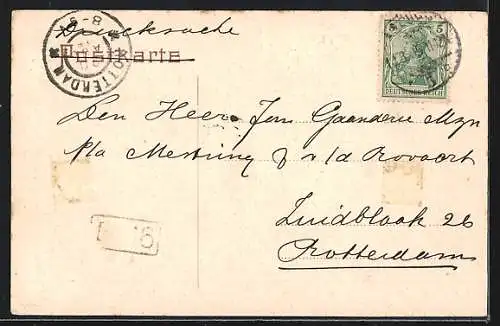 Drucksache
Postkarte
ROTTERDAM
8-9
5 5
DEUTSCHES REICH
Den Heer Jom Gaanderie Mzn
p/a Mestring & v/d Rovaart
Zuidblaak 26
Rotterdam